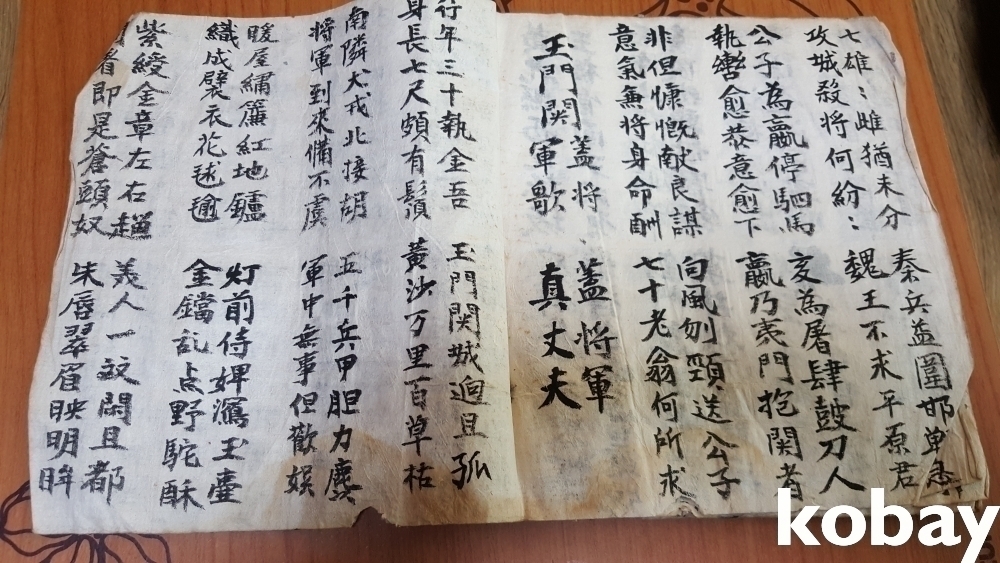 七雄〻雌猶未分
攻城殺將何紛〻
秦兵益圍邯单急
魏王不求平原君
公子為嬴停駟馬
執轡愈恭意愈下
亥為屠肆鼓刀人
嬴乃夷門抱関者
非但慷慨献良謀
意氣兼将身命酬
向風刎頸送公子
七十老翁何所求
玉門関蓋将軍歌
蓋将軍
真丈夫
行年三十執金吾
身長七尺頗有鬚
玉門関城迥且孤
黄沙万里百草枯
南隣犬戎北接胡
将軍到來備不虞
五千兵甲胆力麤
軍中無事但歡娯
暖屋繡簾紅地鑪
織成襞衣花毬毹
灯前侍婢瀉玉壷
金鐺乱点野駝酥
紫綬金章左右趨
者即是蒼頭奴
美人一双閑且都
朱唇翠眉映明眸
kobay